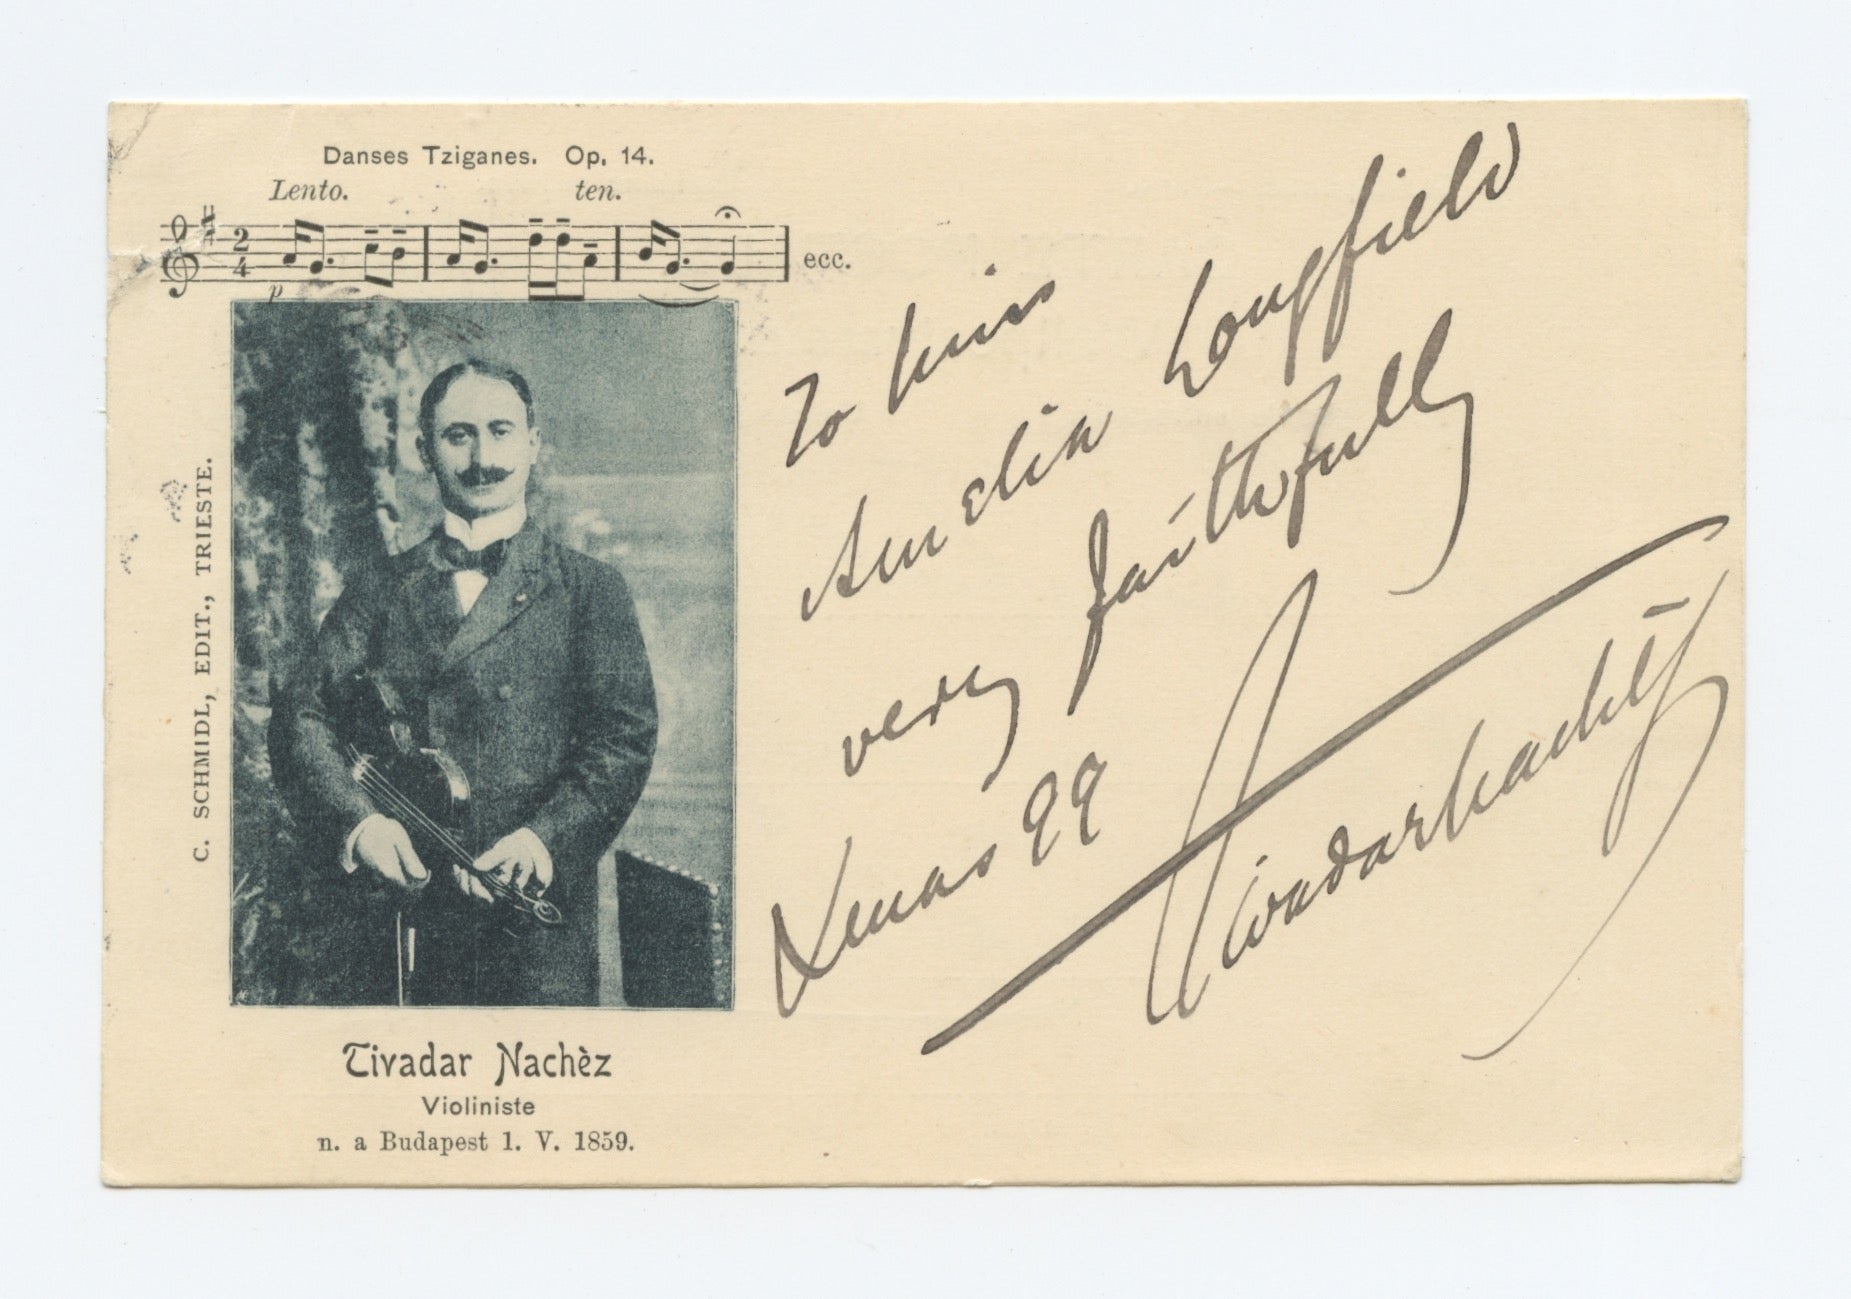 Danses Tziganes. Op. 14.
Lento. ten.
2
4
p
ecc.
C. SCHMIDL, EDIT., TRIESTE.
Tivadar Nachèz
Violiniste
n. a Budapest 1. V. 1859.
To Miss
Amelia Longfield
very faithfully
Xmas 99
Tivadar Nachèz